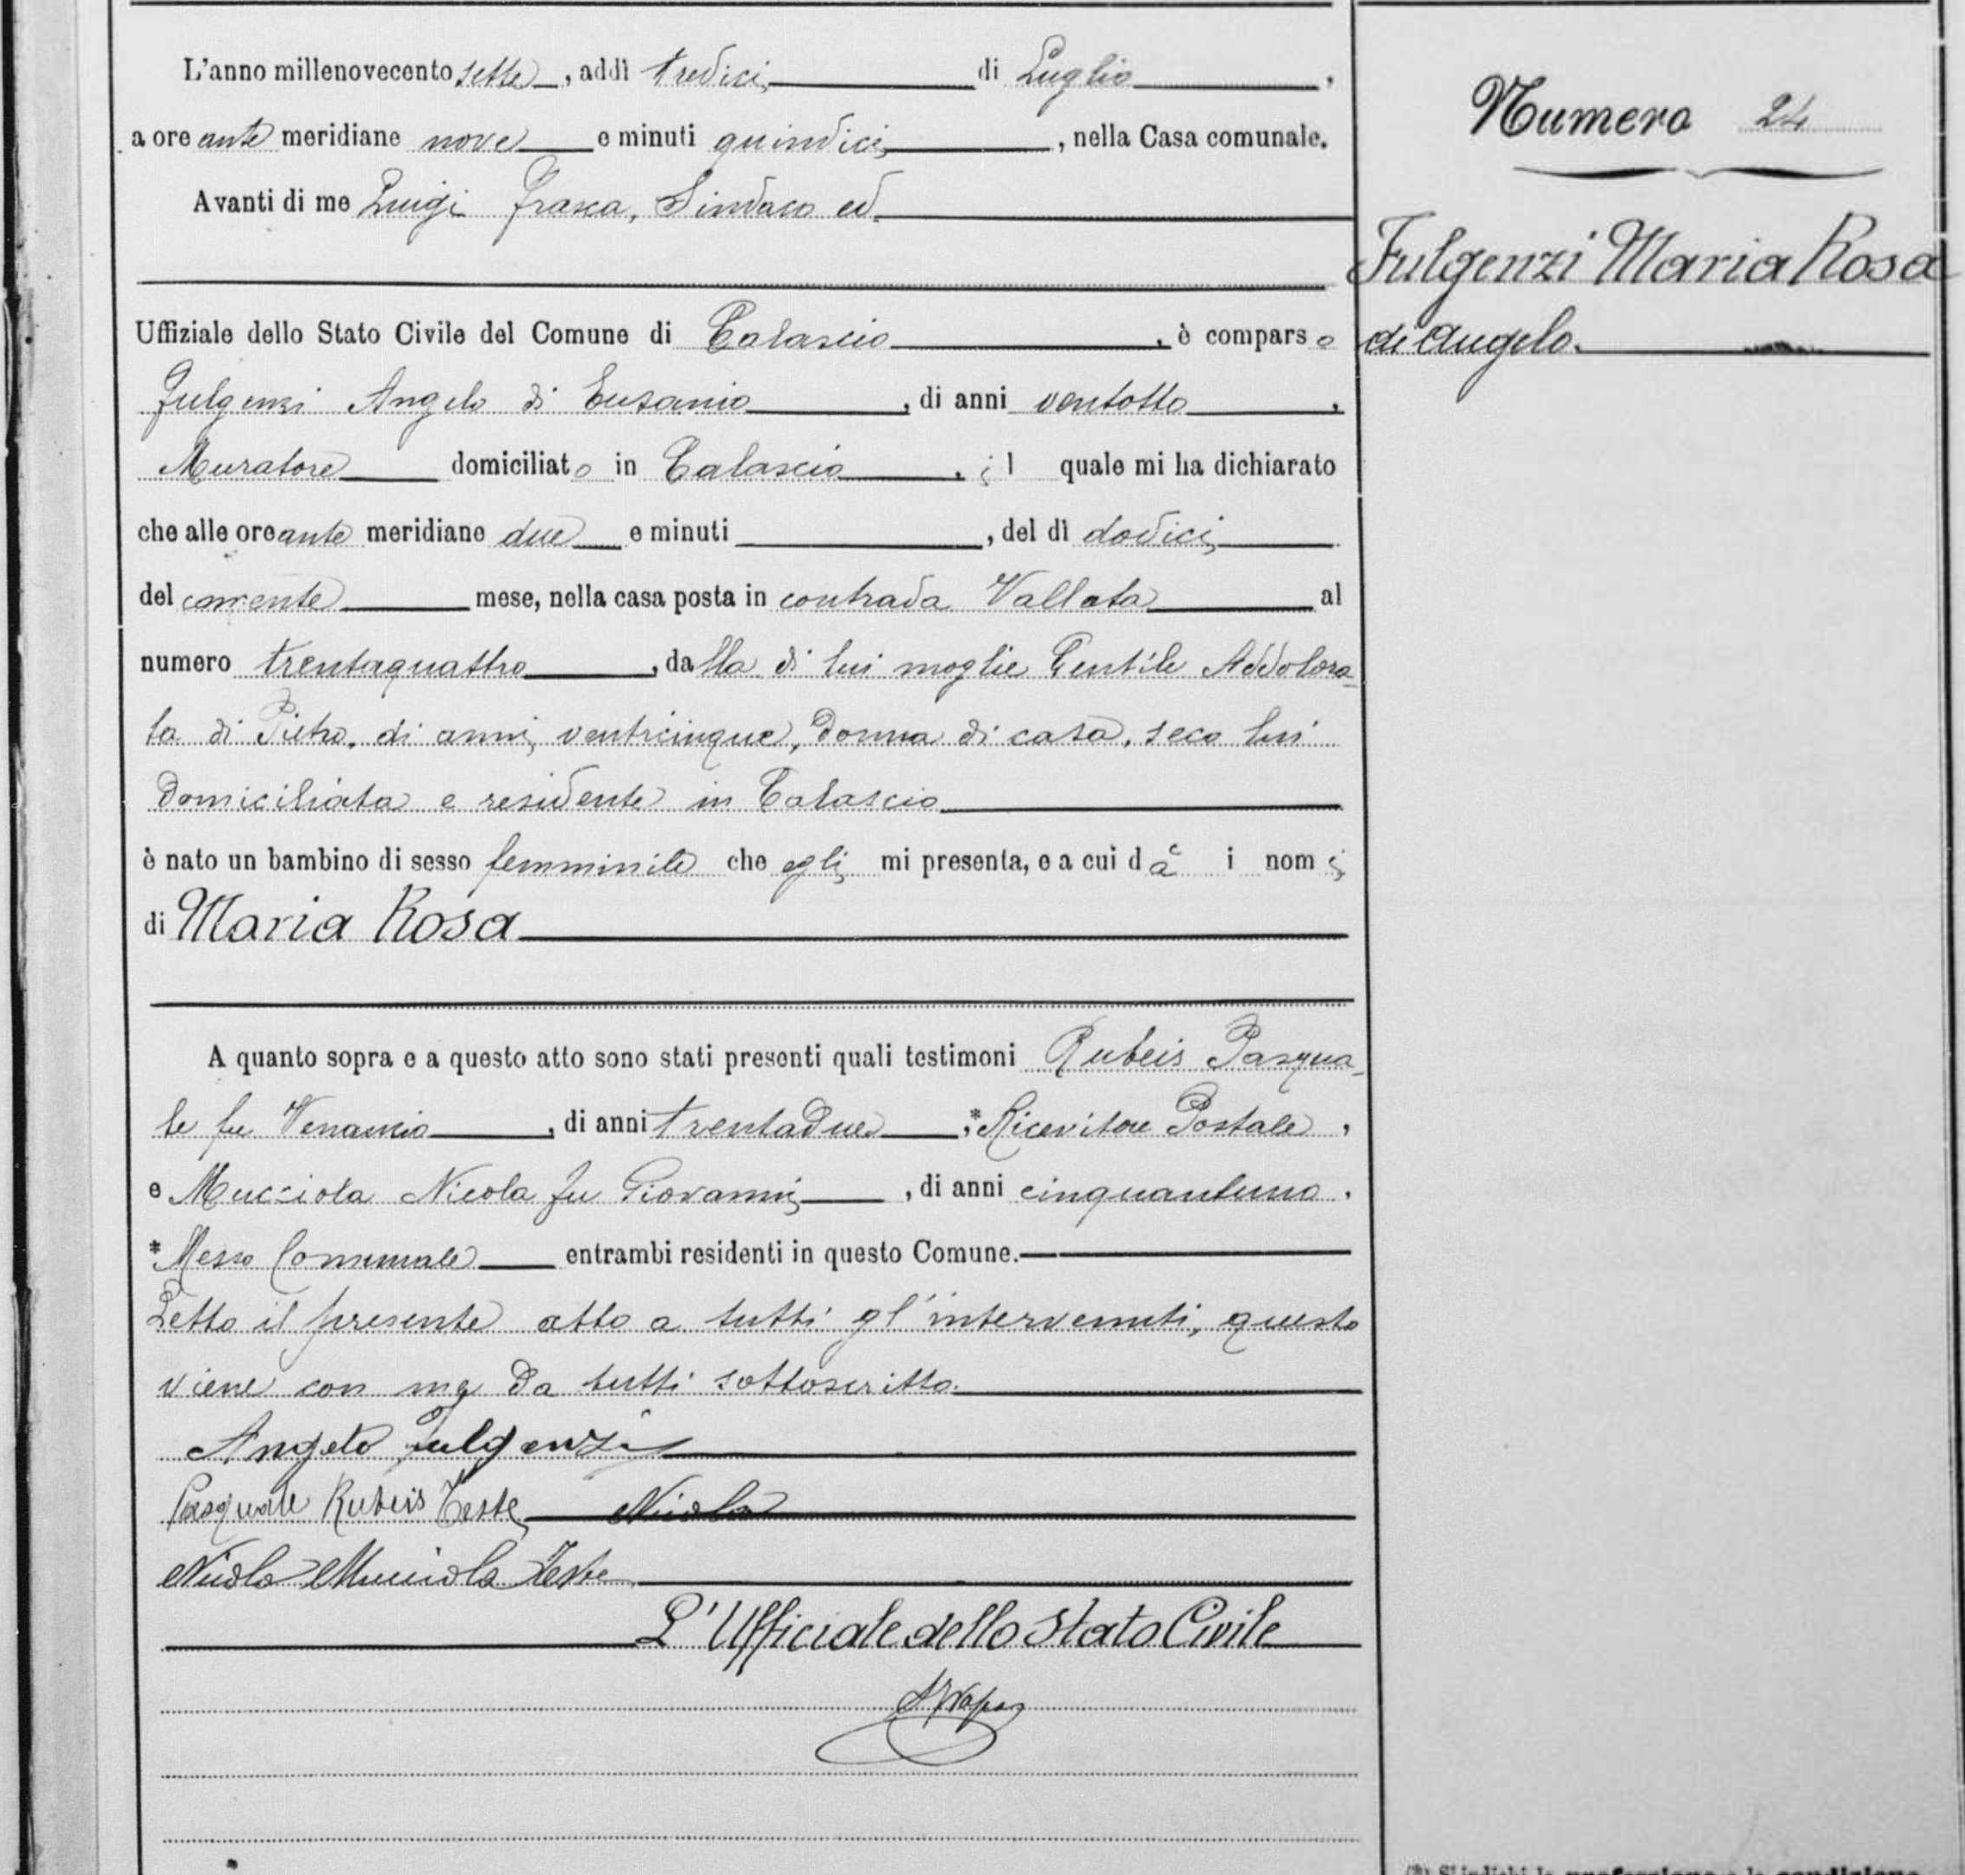 L'anno millenovecento sette, addì tredici di Luglio,
a ore ante meridiane nove e minuti quindici, nella Casa comunale.
Avanti di me Luigi Frasca, Sindaco ed
Uffiziale dello Stato Civile del Comune di Calascio, è comparso
Fulgenzi Angelo di Eusanio, di anni ventotto,
Muratore domiciliato in Calascio, il quale mi ha dichiarato
che alle ore ante meridiane due e minuti , del dì dodici
del corrente mese, nella casa posta in contrada Vallata al
numero trentaquattro, dalla di lui moglie Gentile Addolora-
ta di Pietro, di anni venticinque, donna di casa, seco lui
domiciliata e residente in Calascio
è nato un bambino di sesso femminile che egli mi presenta, e a cui dà i nomi
di Maria Rosa
A quanto sopra e a questo atto sono stati presenti quali testimoni Rubeis Pasqua-
le fu Venanzio, di anni trentadue, * Ricevitore Postale,
e Mucciola Nicola fu Giovanni, di anni cinquantuno,
* Messo Comunale entrambi residenti in questo Comune.
Letto il presente atto a tutti gl'intervenuti, questo
viene con me da tutti sottoscritto.
Angelo Fulgenzi
Pasquale Rubeis Teste Nicola
Nicola Mucciola Teste
L'Ufficiale dello Stato Civile
Numero 24
Fulgenzi Maria Rosa
di Angelo.